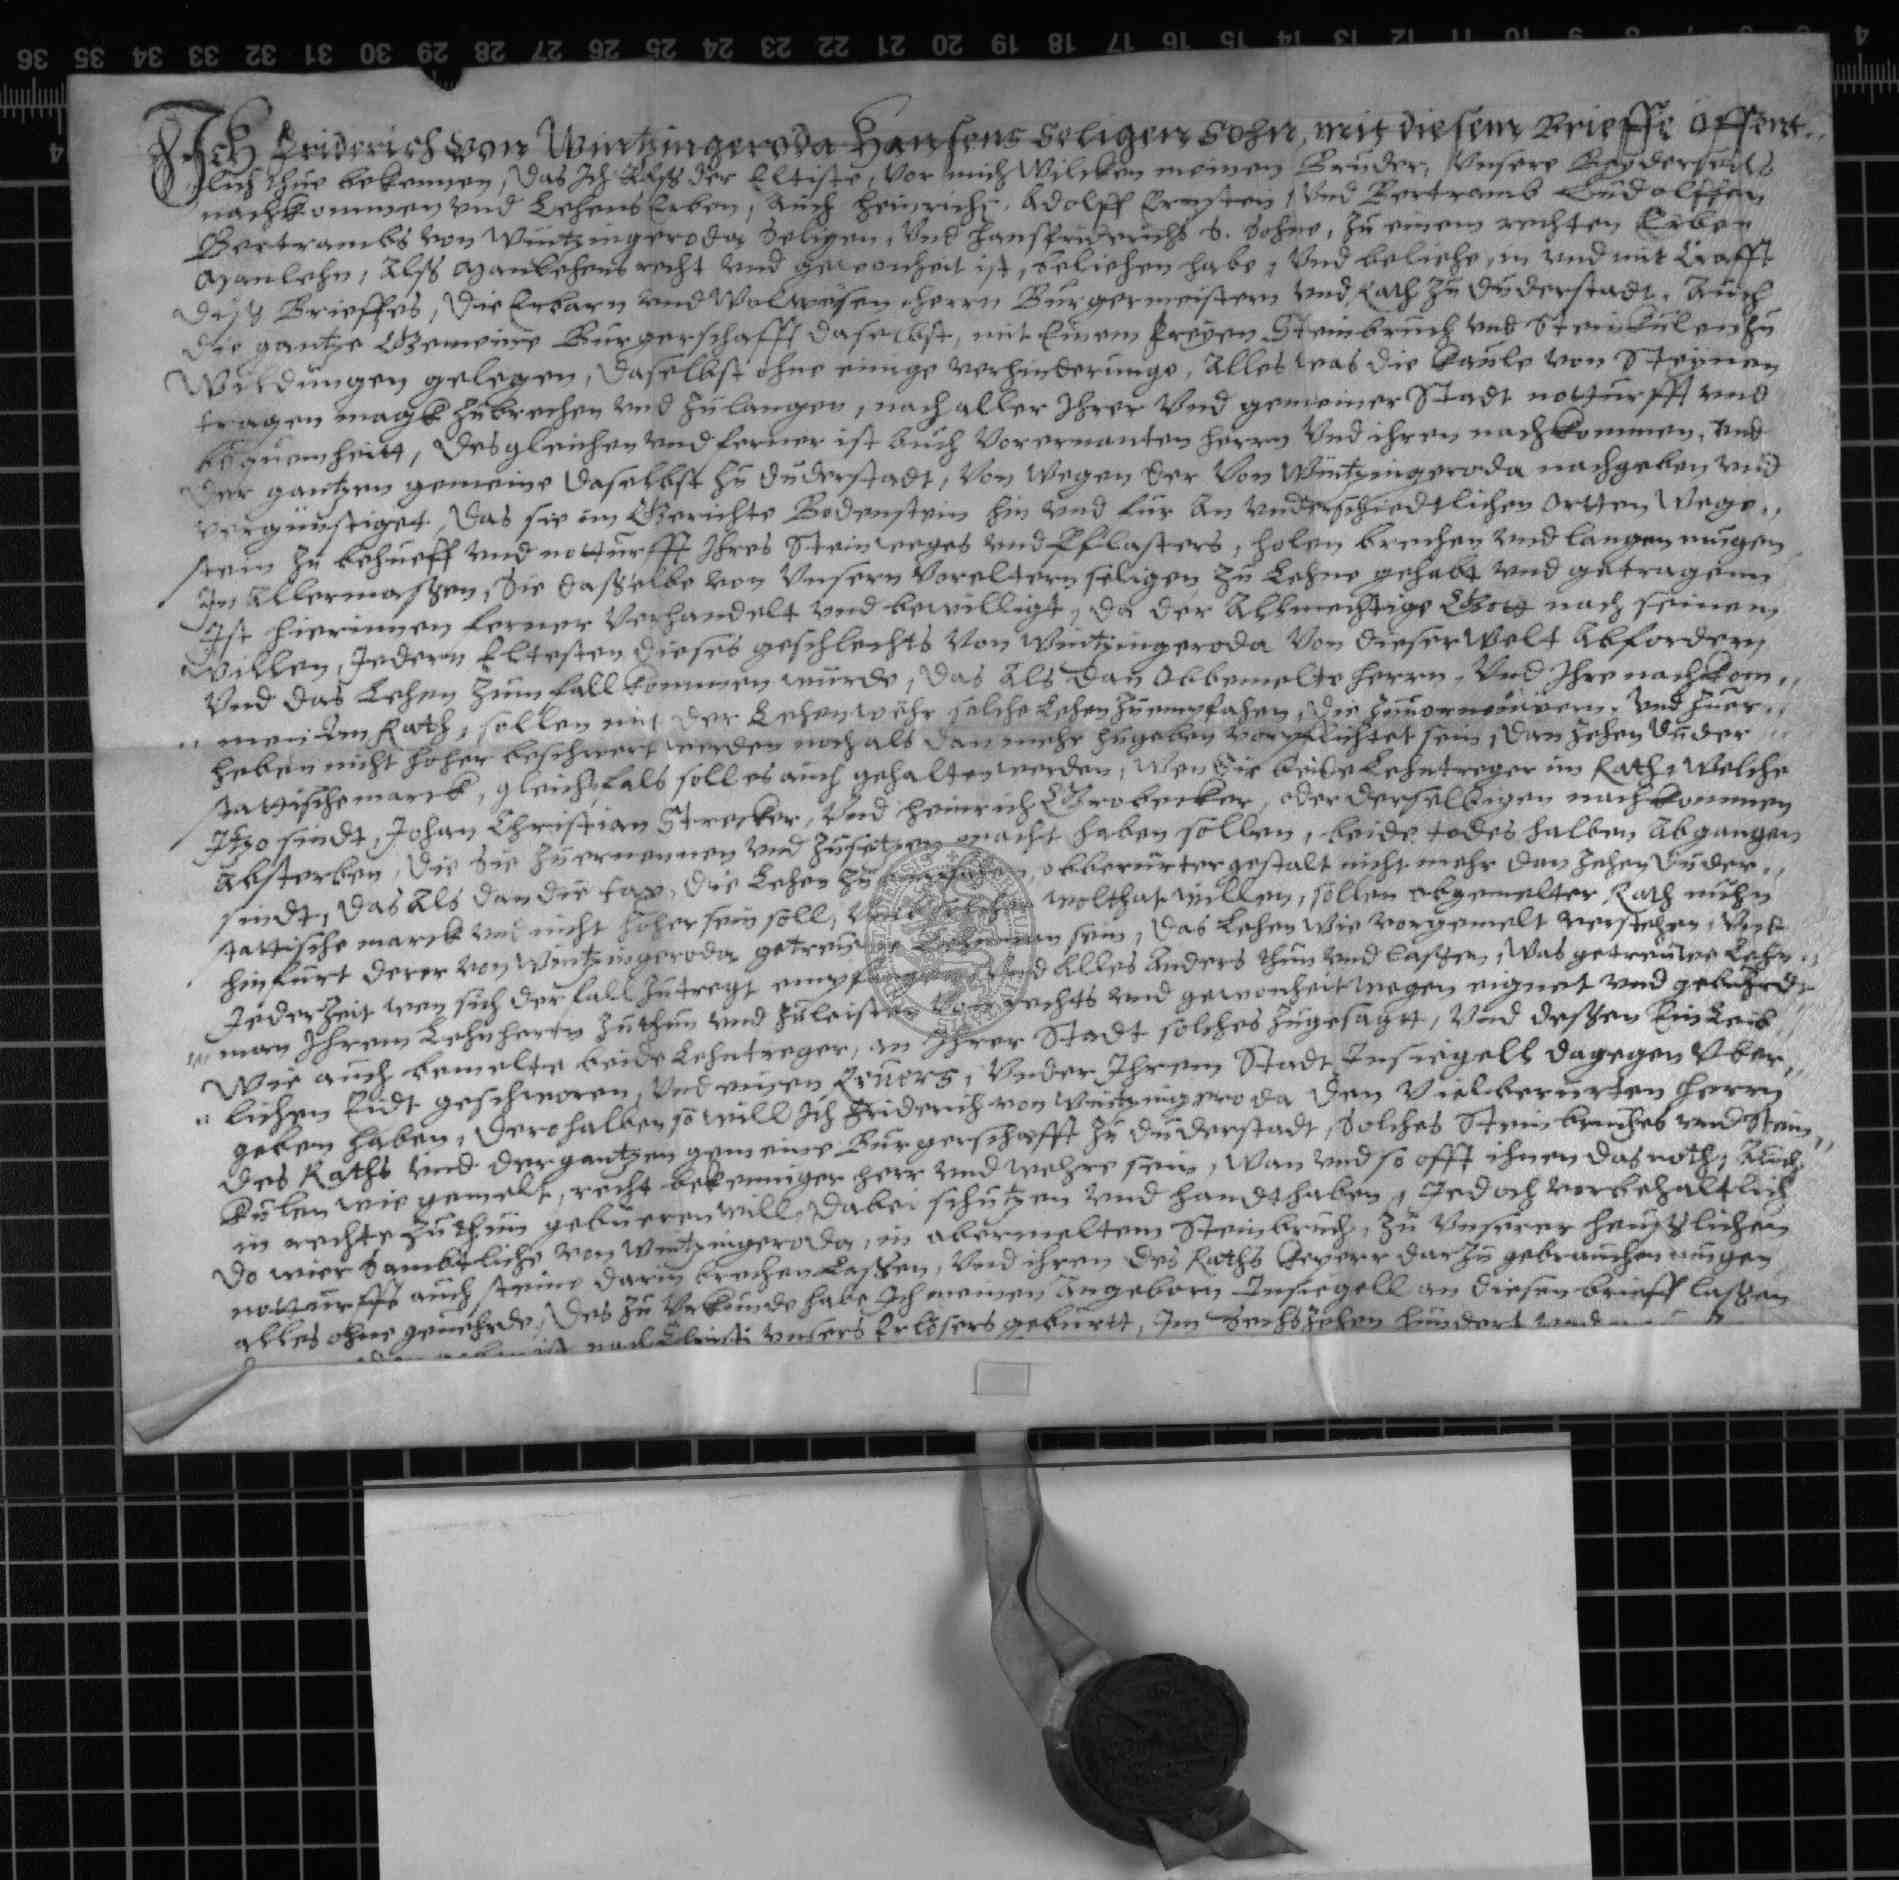 Ich Friderich von Wintzingeroda Hansens seligen Sohn, mit diesem Brieffe offent-
lich thue bekennen, das Ich Alss der Eltiste, vor mich Wilcken meinen Bruder, Unsere Beyderseits
nachkommen und Lehens Erben, Auch Heinrichs, Adolff Ernsten, Und Bertramb Ludolffen
Bertrambs von Wintzingeroda Seligen, Und Hansfriderichs S. Sohne, zu einem rechten Erben
Manlehn, Alss Manlehens recht und gewonheit ist, beliehen habe, Und beliehe, in und mit Crafft
diss Brieffes, die Erbarn und Wolweisen Herrn Burgermeistern und Rath zu Duderstadt, Auch
die gantze Gemeine Burgerschafft daselbst, mit Einem freyen Steinbruch und Steinkulen zu
Wildungen gelegen, daselbst ohne einige verhinderunge, Alles was die kaule von Steynen
tragen magk zubrechen und zulangen, nach aller Ihrer Und gemeiner Stadt notturfft und
bequemheitt, Desgleichen und ferner ist Auch Vorernanten Herrn Und ihren nachkommen, Und
der gantzen gemeine daselbst zu Duderstadt, Von wegen der Von Wintzingeroda nachgeben und
vergunstiget, Das sie im Gerichte Bodenstein hin und fur An underschiedtlichen ortten Wege-
stein zu behueff und notturfft Ihres Steinweges und Pflasters, holen brechen und langen mugen
In Allermassen, Sie dasselbe von Unsern Voreltern seligen zu Lehne gehabt und getragenn
Ist hierinnen ferner Verhandelt und bewilligt, da der Allmechtige Gott nach seinem
willen, Jedern Eltesten dieses geschlechts Von Wintzingeroda Von dieser Welt Abfordern
Und das Lehen zum fall kommen wurde, das Als dan Obbemelte Herrn, Und Ihre nachkom-
men Im Rath, sollen mit der Lehenwehr solche Lehen zuempfahen, die zuuorneuwern, Und zuer-
heben nicht hoher beschwert werden noch als dan mehr zugeben vorpflichtet sein, dan zehen Duder-
stattische marck, gleichsfals soll es auch gehalten werden, Wen die beide Lehntreger im Rath, Welche
Itzo sindt, Johan Christian Strecker, Und Heinrich Grobecker, oder derselbigen nachkommen
Absterben, die Sie zuernennen und zusetzen macht haben sollen, beide todes halben Abgangen
sindt, das Als dan die tax, die Lehen zu empfahen, obberurter gestalt nicht mehr dan zehen Duder-
stattische marck und nicht hoher sein soll, Umb wolthat willen, sollen obgemelter Rath nuhn
hinfurt derer von Wintzingeroda getreuwe Lehnman sein, das Lehen wie vorgemelt verstehen, Und
Jederzeit wen sich der fall zutregt empfangen Und Alles Anders thun und lassen, Was getreuwe Lehn-
man Ihrem Lehnherrn zuthun und zuleisten von rechts und gewonheit wegen eignet und gebuhrdt
Wie auch bemelte beide Lehntreger, an Ihrer Stadt solches zugesagtt, Und dessen Ein Leib-
lichen Eidt geschworen, Und einen Reuers, Under Ihrem Stadt Insiegell dagegen Uber-
geben haben, Derohalben so will Ich Friderich von Wintzingeroda den Vielberurten Herrn
des Raths und der gantzen gemeine Burgerschafft zu Duderstadt, Solches Steinbruches und Stein-
kulen wie gemelt, recht bekenniger Herr und wehre sein, Wan und so offt ihnen das noth, Auch
in rechte zuthun gebueren will, dabei schutzen und handthaben, Jedoch vorbehaltlich
do wier Sambtliche von Wintzingeroda, in abermeltem Steinbruch, zu Unserer heusslichen
notturfft auch steine darin brechen Lassen, Und ihren des Raths darzu gebrauchen mugen
alles ohne geuehrde, Des zu Urkunde habe Ich meinen Angeborn Insiegell an diesen brieff lassen
ist nach Christi unsers Erlösers geburtt, Im Sechszehen hundert und